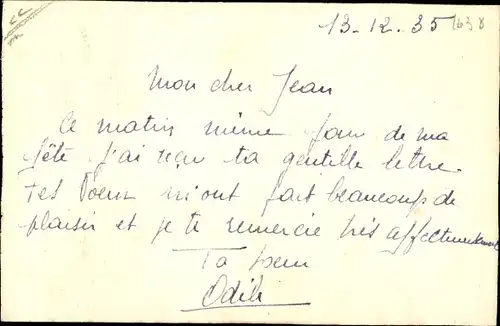 13-12.35 1638
Mon cher Jean
Ce matin même jour de ma
fête j'ai reçu ta gentille lettre.
Tes voeux m'ont fait beaucoup de
plaisir et je te remercie très affectueusement
Ta soeur
Odile